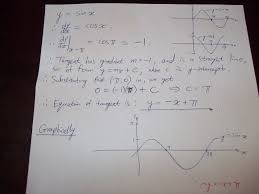 y = sinx
∴ dy/dx = cosx.
∴ dy/dx|x=π = cosπ = -1.
∴ Tangent has gradient m=-1, and is a straight line,
so of form y=mx+c, where c is y-intercept.
∴ Substituting for (π,0) in, we get
0 = (-1)(π) + C ⇒ C = π
∴ Equation of tangent is: y = -x + π
Graphically
y
y=sinx
x